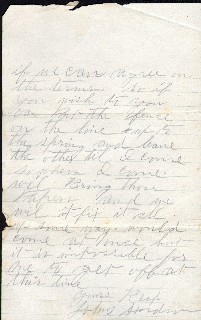 if we can agree on
the terms. So if
you wish to you
can put the fence
on the line up to
the spring and leave
the other till I come
when I come
will Bring those
papers and we
will fix it all
up some way. would
come at once but
it is impossible for
me to get off at
this time
Yours Resp